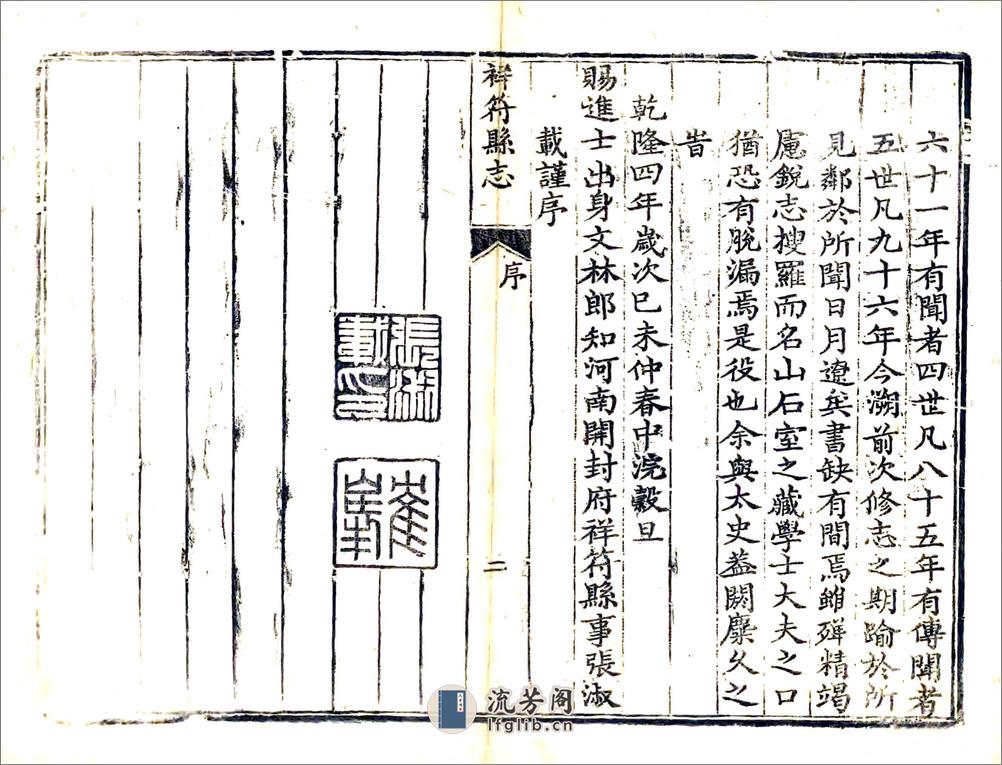 六十一年有聞者四世凡八十五年有傳聞者
五世凡九十六年今溯前次修志之期踰於所
見鄰於所聞日月遼矣書缺有間焉雖殫精竭
慮銳志搜羅而名山石室之藏學士大夫之口
猶恐有脫漏焉是役也余與太史葢闕縻久之
旹
乾隆四年歲次己未仲春中浣榖旦
賜進士出身文林郎知河南開封府祥符縣事張淑
載謹序
祥符縣志
序
二
張淑載印
流芳阁
lfglib.cn